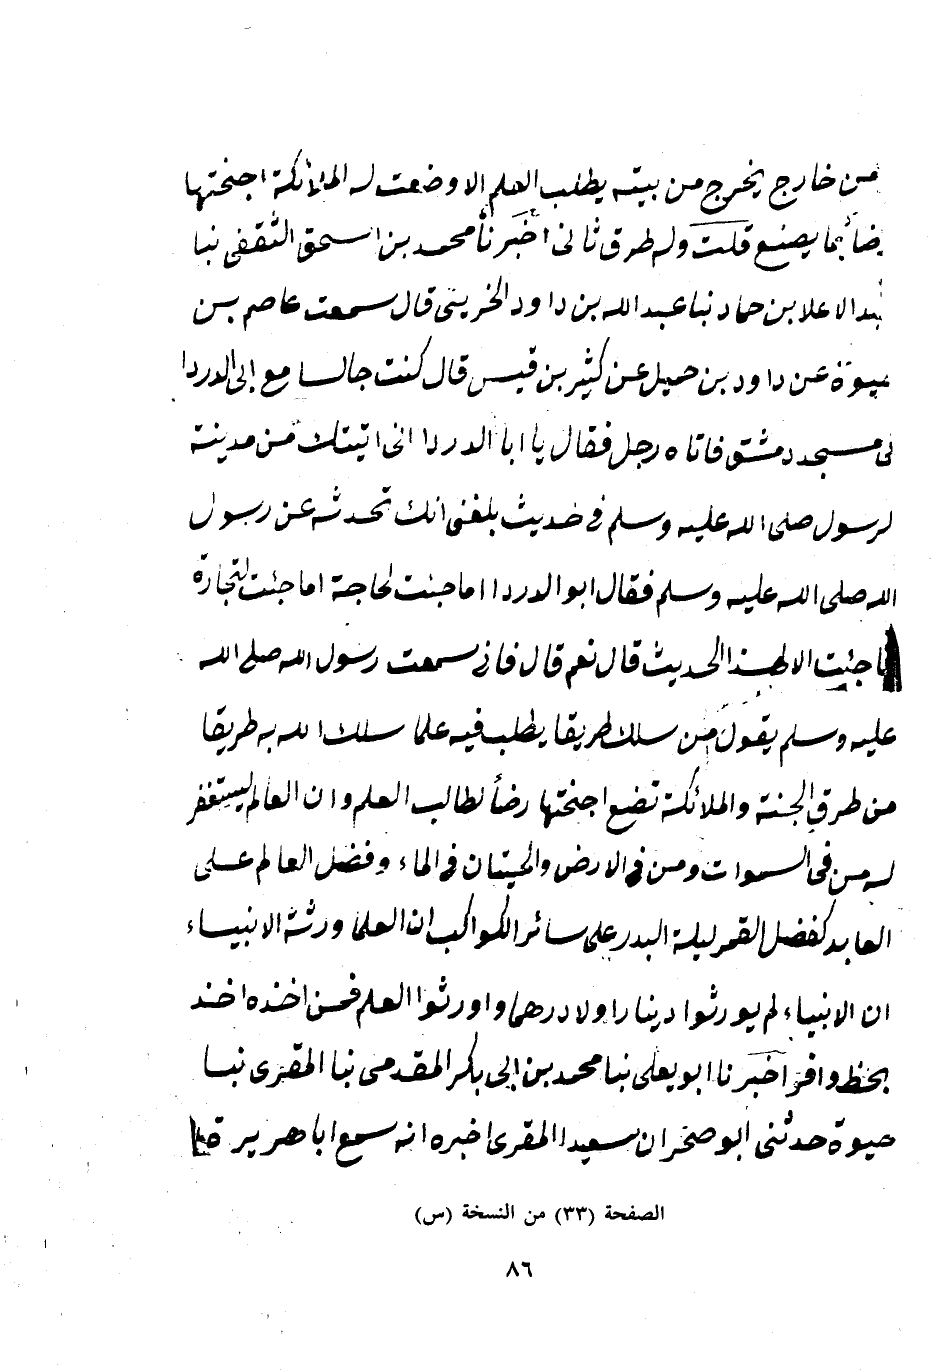 من خارج يخرج من بيته يطلب العلم الا وضعت له الملائكة اجنحتها
ضا بما يصنع قلت وله طرق ثانى اخبرنا محمد بن اسحق الثقفى نبا
بد الاعلا بن حماد نبا عبد الله بن داود الخريبى قال سمعت عاصم بن
حيوة عن داود بن جميل عن كثير بن قيس قال كنت جالسا مع ابى الدردا
فى مسجد دمشق فاتاه رجل فقال يا ابا الدردا انى اتيتك من مدينة
لرسول صلى الله عليه وسلم فى حديث بلغنى انك تحدثه عن رسول
الله صلى الله عليه وسلم فقال ابو الدردا اما جئت لحاجة اما جئت لتجارة
ما جئت الا لهذا الحديث قال نعم قال فانى سمعت رسول الله صلى الله
عليه وسلم يقول من سلك طريقا يطلب فيه علما سلك الله به طريقا
من طرق الجنة والملائكة تضع اجنحتها رضأ لطالب العلم وان العالم ليستغفر
له من فى السموات ومن فى الارض والحيتان فى الماء وفضل العالم على
العابد كفضل القمر ليلة البدر على سائر الكواكب ان العلما ورثة الانبياء
ان الانبياء لم يورثوا دينارا ولا درهما واورثوا العلم فمن اخذه اخذ
بحظ وافر اخبرنا ابو يعلى نبا محمد بن ابى بكر المقدمى نبا المقرى نبا
حيوة حدثنى ابو صخر ان سعيدا المقرى اخبره انه سمع ابا هريرة
الصفحة (٣٣) من النسخة (س)
٨٦